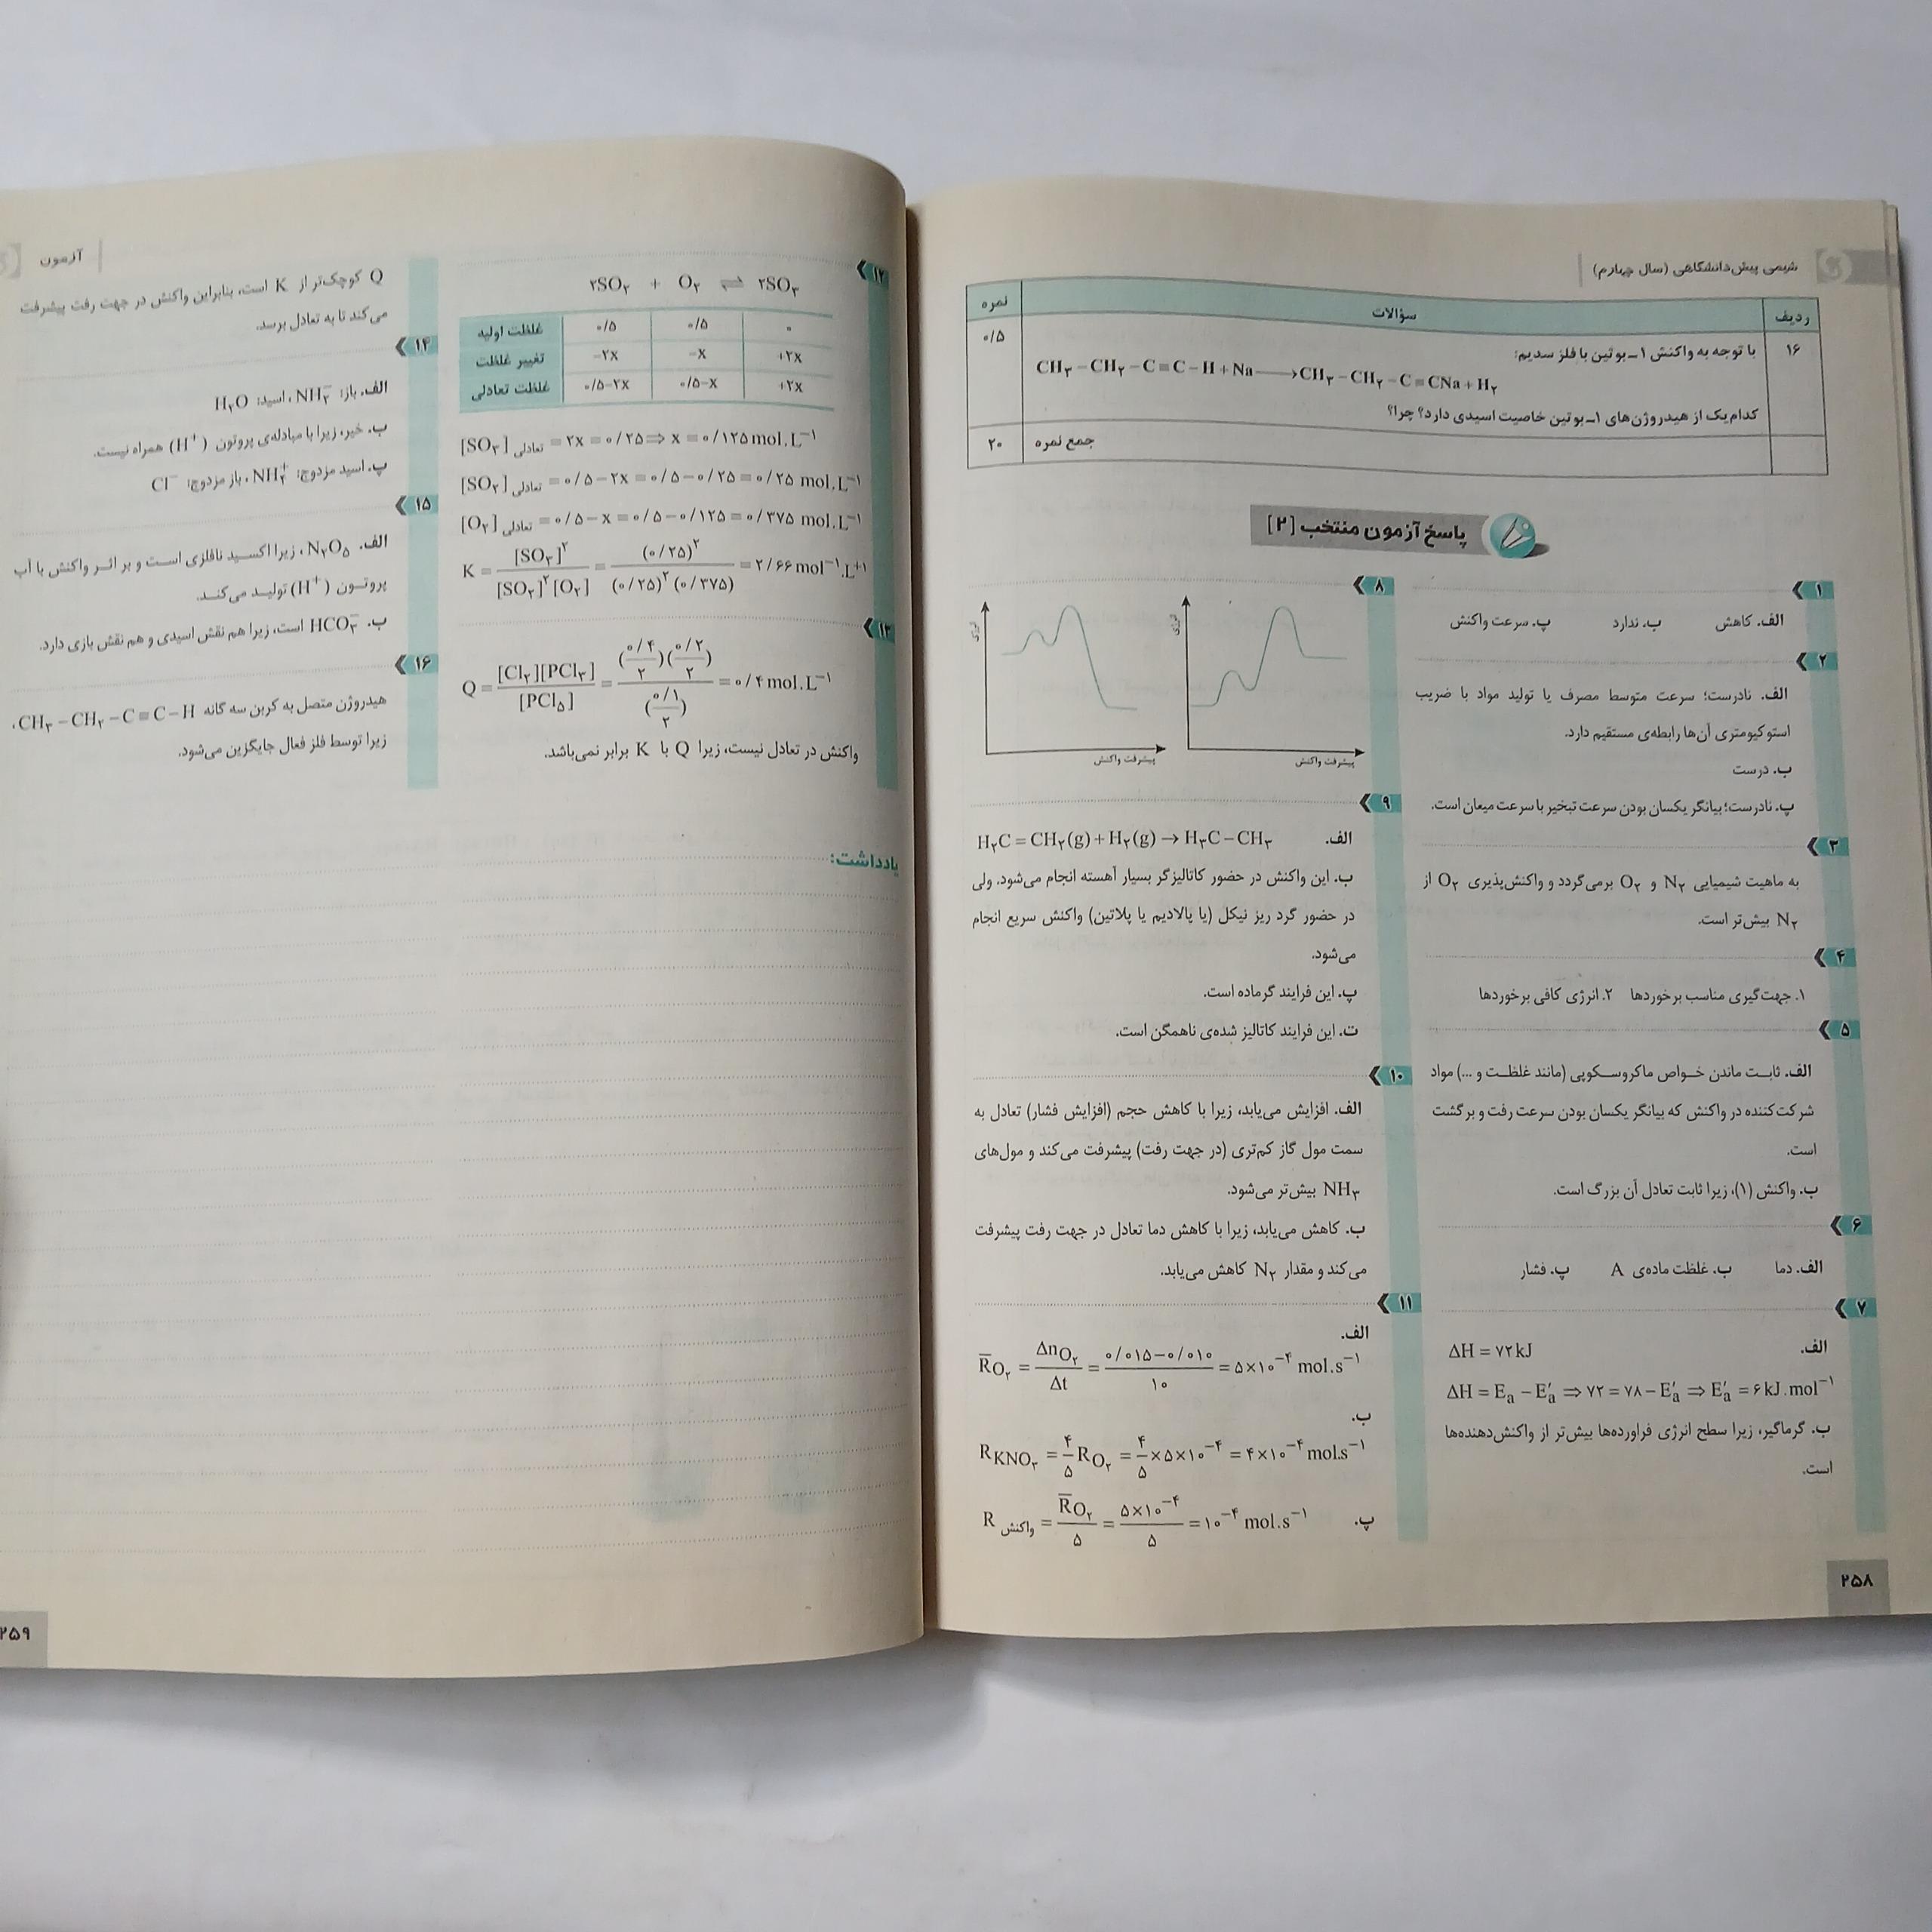 شیمی پیش‌دانشگاهی (سال چهارم)
ردیف سؤالات نمره
۱۶ با توجه به واکنش ۱ـ بوتین با فلز سدیم: ۰/۵
CH₃ − CH₂ − C ≡ C − H + Na ⟶ CH₃ − CH₂ − C ≡ CNa + H₂
کدام یک از هیدروژن‌های ۱ـ بوتین خاصیت اسیدی دارد؟ چرا؟
جمع نمره ۲۰
پاسخ آزمون منتخب [۲]
۱
الف. کاهش ب. ندارد پ. سرعت واکنش
۲
الف. نادرست؛ سرعت متوسط مصرف یا تولید مواد با ضریب
استوکیومتری آن‌ها رابطه‌ی مستقیم دارد.
ب. درست
پ. نادرست؛ بیانگر یکسان بودن سرعت تبخیر با سرعت میعان است.
۳
به ماهیت شیمیایی N₂ و O₂ برمی‌گردد و واکنش‌پذیری O₂ از
N₂ بیش‌تر است.
۴
۱. جهت‌گیری مناسب برخوردها ۲. انرژی کافی برخوردها
۵
الف. ثابت ماندن خواص ماکروسکوپی (مانند غلظت و ...) مواد
شرکت‌کننده در واکنش که بیانگر یکسان بودن سرعت رفت و برگشت
است.
ب. واکنش (۱)، زیرا ثابت تعادل آن بزرگ است.
۶
الف. دما ب. غلظت ماده‌ی A پ. فشار
۷
الف. ΔH = ۷۲ kJ
ΔH = Eₐ − E′ₐ ⇒ ۷۲ = ۷۸ − E′ₐ ⇒ E′ₐ = ۶ kJ.mol⁻¹
ب. گرماگیر، زیرا سطح انرژی فراورده‌ها بیش‌تر از واکنش‌دهنده‌ها
است.
۸
انرژی
پیشرفت واکنش
انرژی
پیشرفت واکنش
۹
الف. H₂C = CH₂(g) + H₂(g) → H₃C − CH₃
ب. این واکنش در حضور کاتالیزگر بسیار آهسته انجام می‌شود. ولی
در حضور گرد ریز نیکل (یا پالادیم یا پلاتین) واکنش سریع انجام
می‌شود.
پ. این فرایند گرماده است.
ت. این فرایند کاتالیز شده‌ی ناهمگن است.
۱۰
الف. افزایش می‌یابد، زیرا با کاهش حجم (افزایش فشار) تعادل به
سمت مول گاز کم‌تری (در جهت رفت) پیشرفت می‌کند و مول‌های
NH₃ بیش‌تر می‌شود.
ب. کاهش می‌یابد، زیرا با کاهش دما تعادل در جهت رفت پیشرفت
می‌کند و مقدار N₂ کاهش می‌یابد.
۱۱
الف.
R̄O₂ = ΔnO₂ / Δt = (۰/۰۱۵ − ۰/۰۱۰) / ۱۰ = ۵×۱۰⁻⁴ mol.s⁻¹
ب.
R KNO₃ = ۴/۵ RO₂ = ۴/۵ × ۵×۱۰⁻⁴ = ۴×۱۰⁻⁴ mol.s⁻¹
پ. R واکنش = R̄O₂ / ۵ = ۵×۱۰⁻⁴ / ۵ = ۱۰⁻⁴ mol.s⁻¹
۲۵۸
آزمون
۱۲
۲SO₂ + O₂ ⇌ ۲SO₃
غلظت اولیه ۰/۵ ۰/۵ ۰
تغییر غلظت −۲x −x +۲x
غلظت تعادلی ۰/۵−۲x ۰/۵−x +۲x
[SO₃] تعادلی = ۲x = ۰/۲۵ ⇒ x = ۰/۱۲۵ mol.L⁻¹
[SO₂] تعادلی = ۰/۵ − ۲x = ۰/۵ − ۰/۲۵ = ۰/۲۵ mol.L⁻¹
[O₂] تعادلی = ۰/۵ − x = ۰/۵ − ۰/۱۲۵ = ۰/۳۷۵ mol.L⁻¹
K = [SO₃]² / [SO₂]²[O₂] = (۰/۲۵)² / (۰/۲۵)²(۰/۳۷۵) = ۲/۶۶ mol⁻¹.L⁺¹
۱۳
Q = [Cl₂][PCl₃] / [PCl₅] = (۰/۴ / ۲)(۰/۲ / ۲) / (۰/۱ / ۲) = ۰/۴ mol.L⁻¹
واکنش در تعادل نیست، زیرا Q با K برابر نمی‌باشد.
یادداشت:
Q کوچک‌تر از K است، بنابراین واکنش در جهت رفت پیشرفت
می‌کند تا به تعادل برسد.
۱۴
الف. باز: NH₂⁻، اسید: H₂O
ب. خیر، زیرا با مبادله‌ی پروتون (H⁺) همراه نیست.
پ. اسید مزدوج: NH₄⁺، باز مزدوج: Cl⁻
۱۵
الف. N₂O₅، زیرا اکسید نافلزی است و بر اثر واکنش با آب
پروتون (H⁺) تولید می‌کند.
ب. HCO₃⁻ است، زیرا هم نقش اسیدی و هم نقش بازی دارد.
۱۶
هیدروژن متصل به کربن سه گانه CH₃ − CH₂ − C ≡ C − H،
زیرا توسط فلز فعال جایگزین می‌شود.
۲۵۹